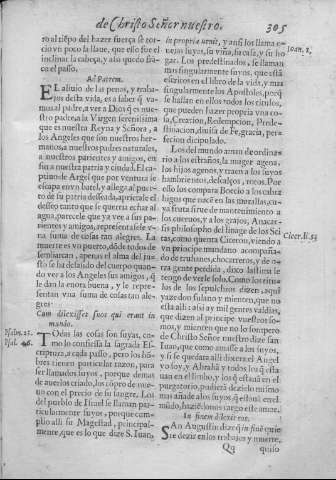 de Christo Señor nuestro. 305
ro al tiẽpo del hazer fuerça se tor
cio vn poco la llaue, que esto fue el
inclinar la cabeça, y assi quedo frã
co el passo.
Ad Patrem.
EL aliuio de las penas, y traba-
jos desta vida, es a saber q̃ va-
mos al padre, a ver a Dios q̃ es nues
tro padre, a la Virgen serenissima
que es nuestra Reyna y Señora, a
los Angeles que son nuestros her-
manos, a nuestros padres naturales,
a nuestros parientes y amigos, en
fin a nuestra patria y ciudad. El ca-
pitan de Argel que por ventura se
escapa en vn batel, y allega al puer-
to de su patria desseada, aprietale el
desseo tanto que se querria echar al
agua, parecele que ya vee a sus pa-
rientes y amigos, representasele v-
na suma de cosas tan alegres. La
muerte es vn puerto, dõde todos de
sembarcan, apenas el alma del jus-
to se ha desasido del cuerpo quan-
do vee a los Angeles sus amigos, q̃
le dan la enora buena, y le repre-
sentan vna suma de cosas tan ale-
gres.
Cum dilexisset suos qui erant in
mundo.
TOdas las cosas son suyas, co-
mo lo confiessa la sagrada Es-
criptura, a cada passo, pero los hõ-
bres tienen particular razon, para
ser llamados suyos, porque demas
de auerlos criado, los cõpro de nue-
uo con el precio de su sangre. Los
del pueblo de Israel se llaman par-
ticularmente suyos, porque cum-
plio alli su Magestad, principal-
mente, que es lo que dize S. Iuan,
Psalm. 21.
Psal. 46.
in propria venit, y ansi los llama o-
uejas suyas, su viña, su casa, y su ho
gar. Los predestinados, se llaman
mas singularmente suyos, que està
escritos en el libro de la vida, y mas
singularmente los Apostoles, porq̃
se hallan en ellos todos los titulos,
que pueden hazer propria vna co-
sa, Creacion, Redempcion, Prede-
stinacion, diuisa de Fe, gracia, per-
feccion dicipolado.
Ioan. 1.
Los del mundo aman de ordina-
rio a los estraños, la muger agena,
los hijos agenos, y traen a los suyos
hambrientos, descalços, rotos. Por
esso los compara Boecio a los cabra
higos que nacẽ en las murallas, cu-
ya fruta sirue de mantenimiento a
los cueruos, y a los grajos. Anacar-
sis philosopho del linage de los Sci
tas, como quenta Ciceron, viendo a
vn principe mundano acompaña-
do de truhanes, chocarreros, y de o-
tra gente perdida, dixo lastima le
tengo de verle solo. Como los titu-
los de los sepulchros dizen, aqui
yaze don fulano y mienten, que no
esta alli: assi ay mil gentes valdias,
que dizen al principe vuestros so-
mos, y mienten que no lo son: pero
de Christo Señor nuestro dize san
Iuan, que como amasse a los suyos,
y si se quedara alli dixera el Angel
suyo soy, y Abrahã y todos los q̃ esta-
uan en el limbo, y los q̃ estauã en el
purgatorio, pudierã dezir lo mismo
mas añade a los suyos, q̃ estauã en el
mũdo, haziẽdonos cargo este amor.
In finem dilexit eos.
Cicer. li. 53
SAn Augustin dize q̃ in finẽ quie
re dezir en los trabajos y muerte,
Qq quiso